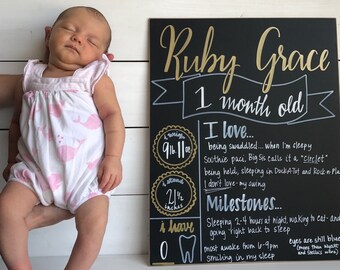 Ruby Grace
1 month old
I love...
being swaddled... when I'm sleepy
Soothin paci, Big Sis calls it a "Circlet"
being held, sleeping in DockATot and Rock n Play
I don't love - my swing
i weigh
9 lb 11 oz
i am around
21 1/2
inches
i have
0
Milestones...
Sleeping 2-4 hours at night, waking to eat - and
going right back to sleep
most awake from 6-9pm
smiling in my sleep
eyes are still blue